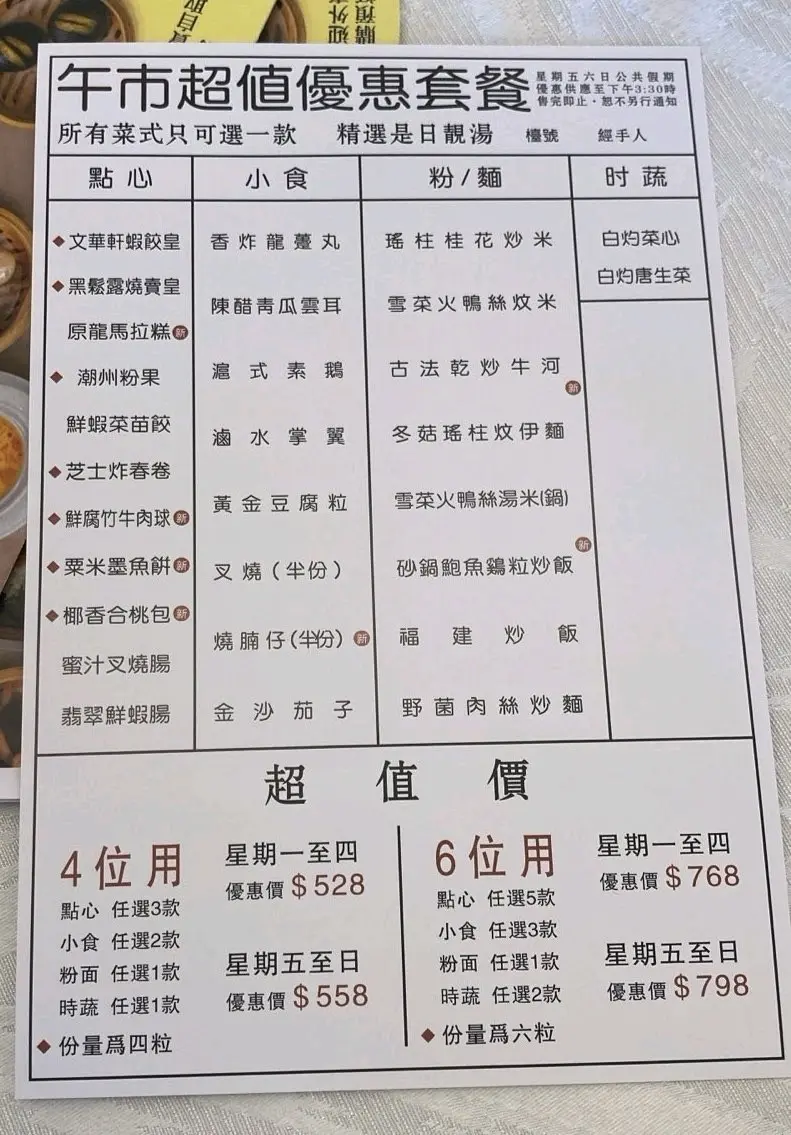 食自取
迎外
購預
午市超值優惠套餐
星期五六日公共假期
優惠供應至下午3:30時
售完即止·恕不另行通知
所有菜式只可選一款 精選是日靚湯 檯號 經手人
點心 小食 粉/麵 时蔬
◆文華軒蝦餃皇
◆黑鬆露燒賣皇
原龍馬拉糕新
◆潮州粉果
鮮蝦菜苗餃
◆芝士炸春卷
◆鮮腐竹牛肉球新
◆粟米墨魚餅新
◆椰香合桃包新
蜜汁叉燒腸
翡翠鮮蝦腸
香炸龍躉丸
陳醋青瓜雲耳
滬式素鵝
滷水掌翼
黃金豆腐粒
叉燒(半份)
燒腩仔(半份)新
金沙茄子
瑤柱桂花炒米
雪菜火鴨絲炆米
古法乾炒牛河新
冬菇瑤柱炆伊麵
雪菜火鴨絲湯米(鍋)
砂鍋鮑魚鷄粒炒飯新
福建炒飯
野菌肉絲炒麵
白灼菜心
白灼唐生菜
超值價
4位用
點心 任選3款
小食 任選2款
粉面 任選1款
時蔬 任選1款
◆份量爲四粒
星期一至四
優惠價$528
星期五至日
優惠價$558
6位用
點心 任選5款
小食 任選3款
粉面 任選1款
時蔬 任選2款
◆份量爲六粒
星期一至四
優惠價$768
星期五至日
優惠價$798